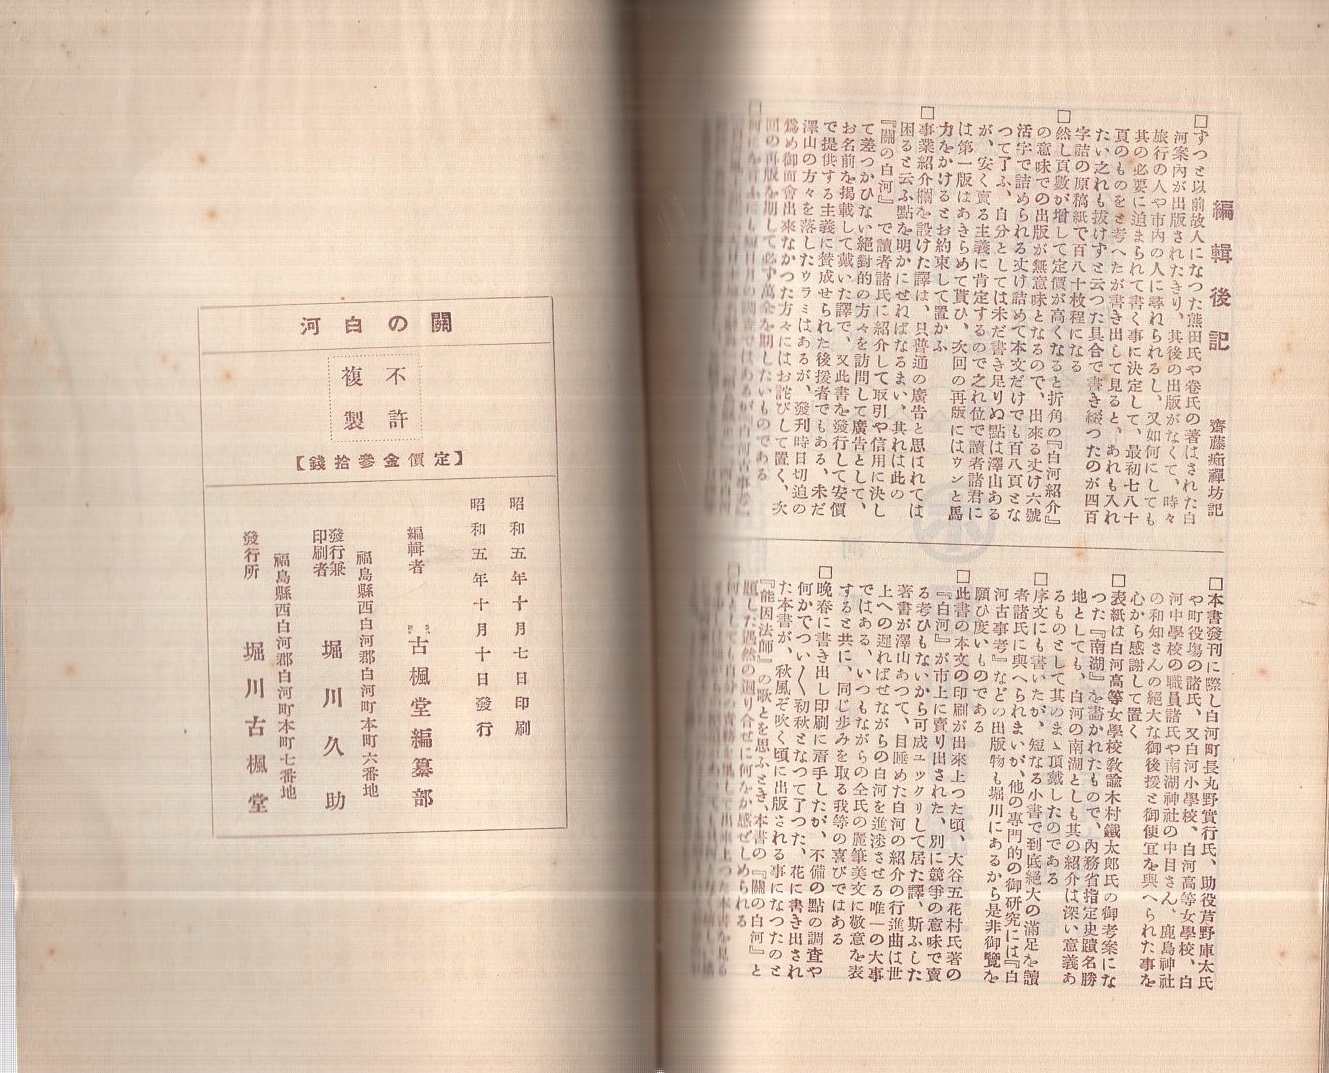 編輯後記
齋藤痴禪坊記
□ずつと以前故人になつた熊田氏や卷氏の著はされた白
河案內が出版されたきり、其後の出版がなくて、時々
旅行の人や市內の人に尋れられるし、又如何にしても
其の必要に迫まられて書く事に決定して、最初七八十
頁のものをと考へたが書き出して見ると、あれも入れ
たい之れも拔けずと云つた具合で書き綴つたのが四百
字詰の原稿紙で百八十枚程になる
□然し頁數が增して定價が高くなると折角の『白河紹介』
の意味での出版が無意味となるので、出來る丈け六號
活字で詰められる丈け詰めて本文だけでも百八頁とな
つて了ふ、自分としては未だ書き足りぬ點は澤山ある
が、安く賣る主義に肯定するので之れ位で讀者諸君に
は第一版はあきらめて貰ひ、次回の再版にはウンと馬
力をかけるとお約束して置かふ
□事業紹介欄を設けた譯は、只普通の廣告と思ばれては
困ると云ふ點を明かにせねばなるまい、其れは此の
『關の白河』で讀者諸氏に紹介して取引や信用に決し
て差つかひない絕對的の方々を訪問して廣告として、
お名前を揭載して戴いた譯で、又此書を發行して安價
で提供する主義に賛成せられた後援者でもある、未だ
澤山の方々を落したウラミはあるが、發刊時日切迫の
爲め御面會出來なかつた方々にはお詫びして置く、次
回の再版を期して必ず萬全を期したいものである
□本書發刊に際し白河町長丸野實行氏、助役芦野庫太氏
や町役場の諸氏、又白河小學校、白河高等女學校、白
河中學校の職員諸氏や南湖神社の中目さん、鹿島神社
の和知さんの絕大な御後援と御便宜を與へられた事を
心から感謝して置く
□表紙は白河高等女學校教諭木村鐵太郎氏の御考案にな
つた『南湖』を畵かれたもので、內務省指定史蹟名勝
地としても、白河の南湖としも其の紹介は深い意義あ
るものとして其のまゝ頂戴したのである
□序文にも書いたが、短なる小書で到底絕大の滿足を讀
者諸氏に與へられまいが、他の專門的の御研究には『白
河古事考』などの出版物も堀川にあるから是非御覽を
願ひ度いものである
□此書の本文の印刷が出來上つた頃、大谷五花村氏著の
『白河』が市上に賣り出された、別に競爭の意味で賣
る考ひもないから可成ユックリして居た譯、斯ふした
著書が澤山あつて、目睡めた白河の紹介の行進曲は世
上への遲ればせながらの白河を進涉させる唯一の大事
ではある、いつもながらの仝氏の麗筆美文に敬意を表
すると共に、同じ步みを取る我等の喜びではある
□晚春に書き出し印刷に著手したが、不備の點の調査や
何かでつい〱初秋となつて了つた、花に書き出され
た本書が、秋風ぞ吹く頃に出版される事になつたのと
『能因法師』の歌とを思ふとき、本書の『關の白河』と
題した偶然の廻り合せに何をか感ぜしめられる
關の白河
不許
複製
【定價金參拾錢】
昭和五年十月七日印刷
昭和五年十月十日發行
編輯者　古楓堂編纂部
福島縣西白河郡白河町本町六番地
發行兼
印刷者　堀川久助
福島縣西白河郡白河町本町七番地
發行所　堀川古楓堂